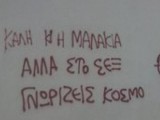 ΚΑΛΗ Η Η ΜΑΛΑΚΙΑ
ΑΛΛΑ ΣΤΟ ΣΕΞ
ΓΝΩΡΙΖΕΙΣ ΚΟΣΜΟ